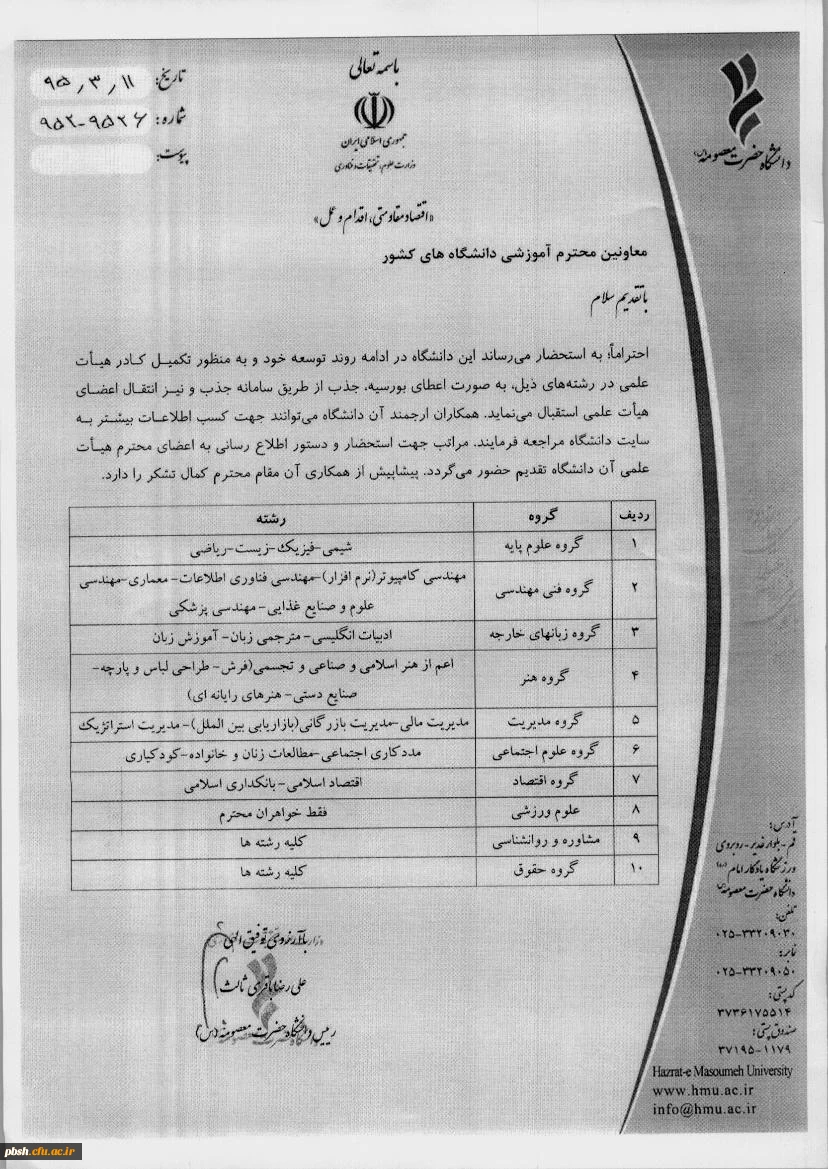 باسمه تعالی
جمهوری اسلامی ایران
وزارت علوم، تحقیقات و فناوری
دانشگاه حضرت معصومه (س)
تاریخ: ۹۵/۳/۱۱
شماره: ۹۵۲-۹۵۲۶
پیوست:
«اقتصاد مقاومتی، اقدام و عمل»
معاونین محترم آموزشی دانشگاه های کشور
با تقدیم سلام
احتراماً؛ به استحضار می‌رساند این دانشگاه در ادامه روند توسعه خود و به منظور تکمیل کادر هیأت
علمی در رشته‌های ذیل، به صورت اعطای بورسیه، جذب از طریق سامانه جذب و نیز انتقال اعضای
هیأت علمی استقبال می‌نماید. همکاران ارجمند آن دانشگاه می‌توانند جهت کسب اطلاعات بیشتر به
سایت دانشگاه مراجعه فرمایند. مراتب جهت استحضار و دستور اطلاع رسانی به اعضای محترم هیأت
علمی آن دانشگاه تقدیم حضور می‌گردد. پیشاپیش از همکاری آن مقام محترم کمال تشکر را دارد.
ردیف گروه رشته
۱ گروه علوم پایه شیمی-فیزیک-زیست-ریاضی
۲ گروه فنی مهندسی مهندسی کامپیوتر(نرم افزار)-مهندسی فناوری اطلاعات- معماری-مهندسی
علوم و صنایع غذایی- مهندسی پزشکی
۳ گروه زبانهای خارجه ادبیات انگلیسی- مترجمی زبان- آموزش زبان
۴ گروه هنر اعم از هنر اسلامی و صناعی و تجسمی(فرش- طراحی لباس و پارچه-
صنایع دستی- هنرهای رایانه ای)
۵ گروه مدیریت مدیریت مالی-مدیریت بازرگانی(بازاریابی بین الملل)- مدیریت استراتژیک
۶ گروه علوم اجتماعی مددکاری اجتماعی-مطالعات زنان و خانواده-کودکیاری
۷ گروه اقتصاد اقتصاد اسلامی- بانکداری اسلامی
۸ علوم ورزشی فقط خواهران محترم
۹ مشاوره و روانشناسی کلیه رشته ها
۱۰ گروه حقوق کلیه رشته ها
با آرزوی توفیق الهی
علی رضا باقری ثالث
رییس دانشگاه حضرت معصومه (س)
آدرس:
قم - بلوار غدیر - روبروی
ورزشگاه یادگار امام (ره)
دانشگاه حضرت معصومه (س)
تلفن:
۰۲۵-۳۳۲۰۹۰۳۰
نمابر:
۰۲۵-۳۳۲۰۹۰۵۰
کد پستی:
۳۷۳۶۱۷۵۵۱۴
صندوق پستی:
۳۷۱۹۵-۱۱۷۹
Hazrat-e Masoumeh University
www.hmu.ac.ir
info@hmu.ac.ir
pbsh.cfu.ac.ir